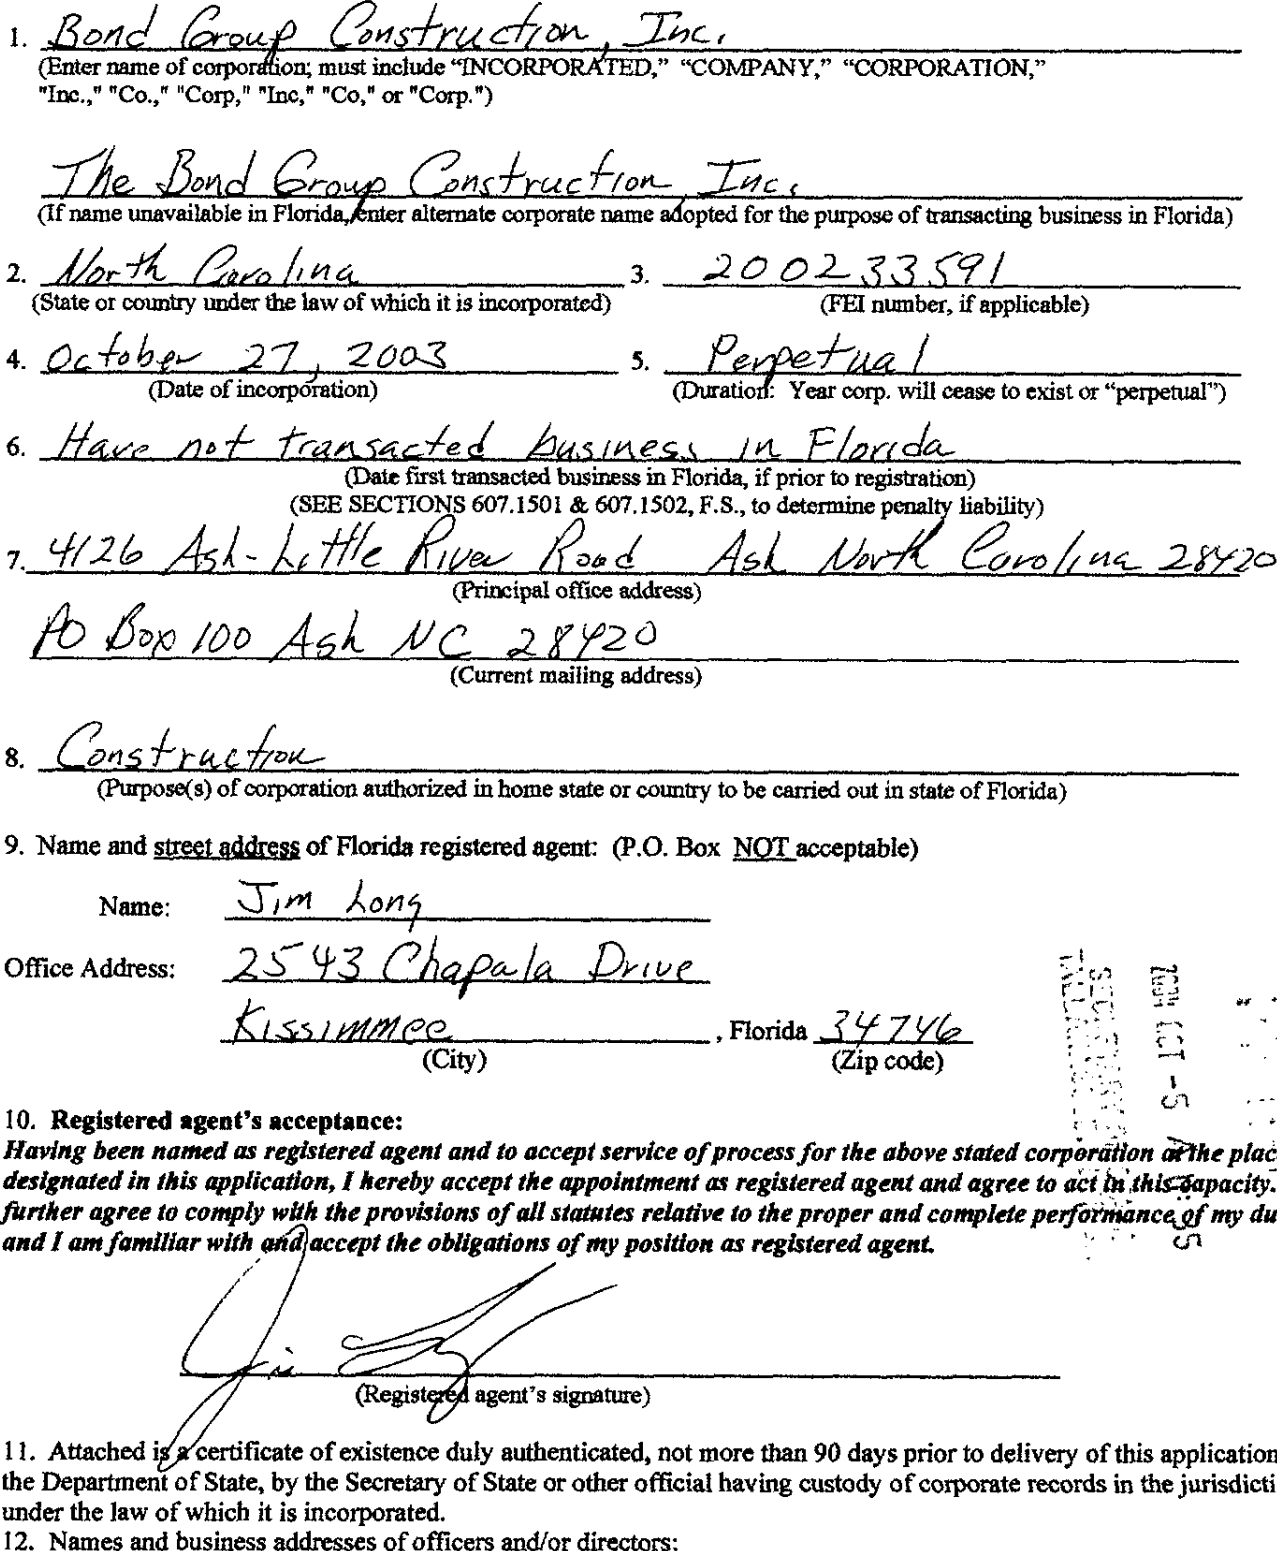 1. Bond Group Construction, Inc.
(Enter name of corporation; must include “INCORPORATED,” “COMPANY,” “CORPORATION,”
"Inc.," "Co.," "Corp," "Inc," "Co," or "Corp.")
The Bond Group Construction, Inc.
(If name unavailable in Florida, enter alternate corporate name adopted for the purpose of transacting business in Florida)
2. North Carolina 3. 200233591
(State or country under the law of which it is incorporated) (FEI number, if applicable)
4. October 27, 2003 5. Perpetual
(Date of incorporation) (Duration: Year corp. will cease to exist or “perpetual”)
6. Have not transacted business in Florida
(Date first transacted business in Florida, if prior to registration)
(SEE SECTIONS 607.1501 & 607.1502, F.S., to determine penalty liability)
7. 4126 Ash-Little River Road Ash North Carolina 28420
(Principal office address)
PO Box 100 Ash NC 28420
(Current mailing address)
8. Construction
(Purpose(s) of corporation authorized in home state or country to be carried out in state of Florida)
9. Name and street address of Florida registered agent: (P.O. Box NOT acceptable)
Name: Jim Long
Office Address: 2543 Chapala Drive
Kissimmee, Florida 34746
(City) (Zip code)
10. Registered agent's acceptance:
Having been named as registered agent and to accept service of process for the above stated corporation at the plac
designated in this application, I hereby accept the appointment as registered agent and agree to act in this capacity.
further agree to comply with the provisions of all statutes relative to the proper and complete performance of my du
and I am familiar with and accept the obligations of my position as registered agent.
(Registered agent's signature)
11. Attached is a certificate of existence duly authenticated, not more than 90 days prior to delivery of this application
the Department of State, by the Secretary of State or other official having custody of corporate records in the jurisdicti
under the law of which it is incorporated.
12. Names and business addresses of officers and/or directors: